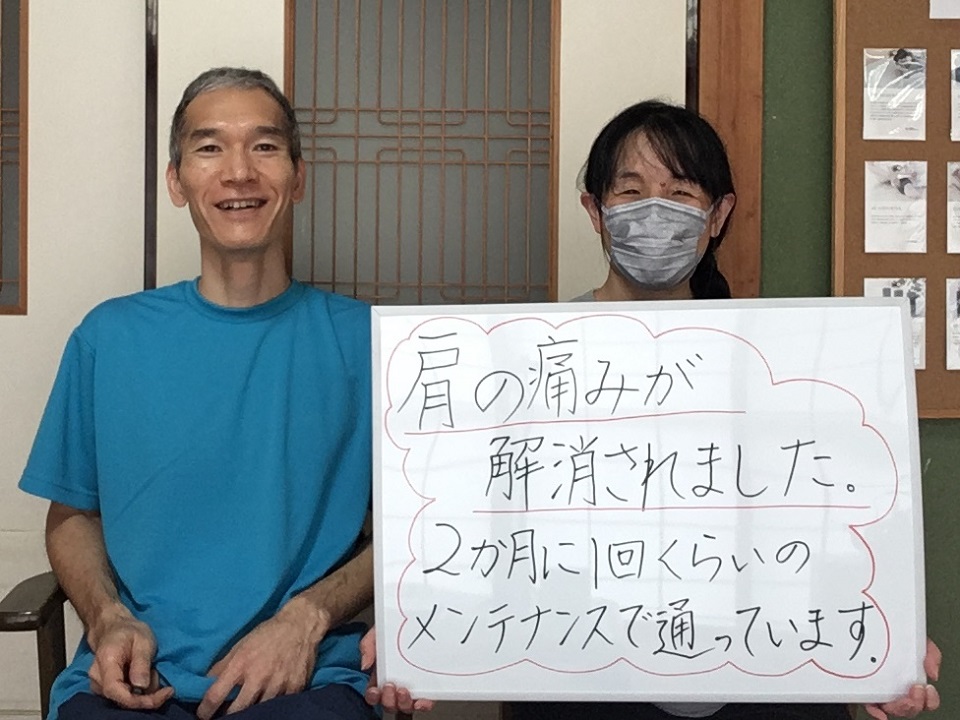 肩の痛みが
解消されました。
2か月に1回くらいの
メンテナンスで通っています.